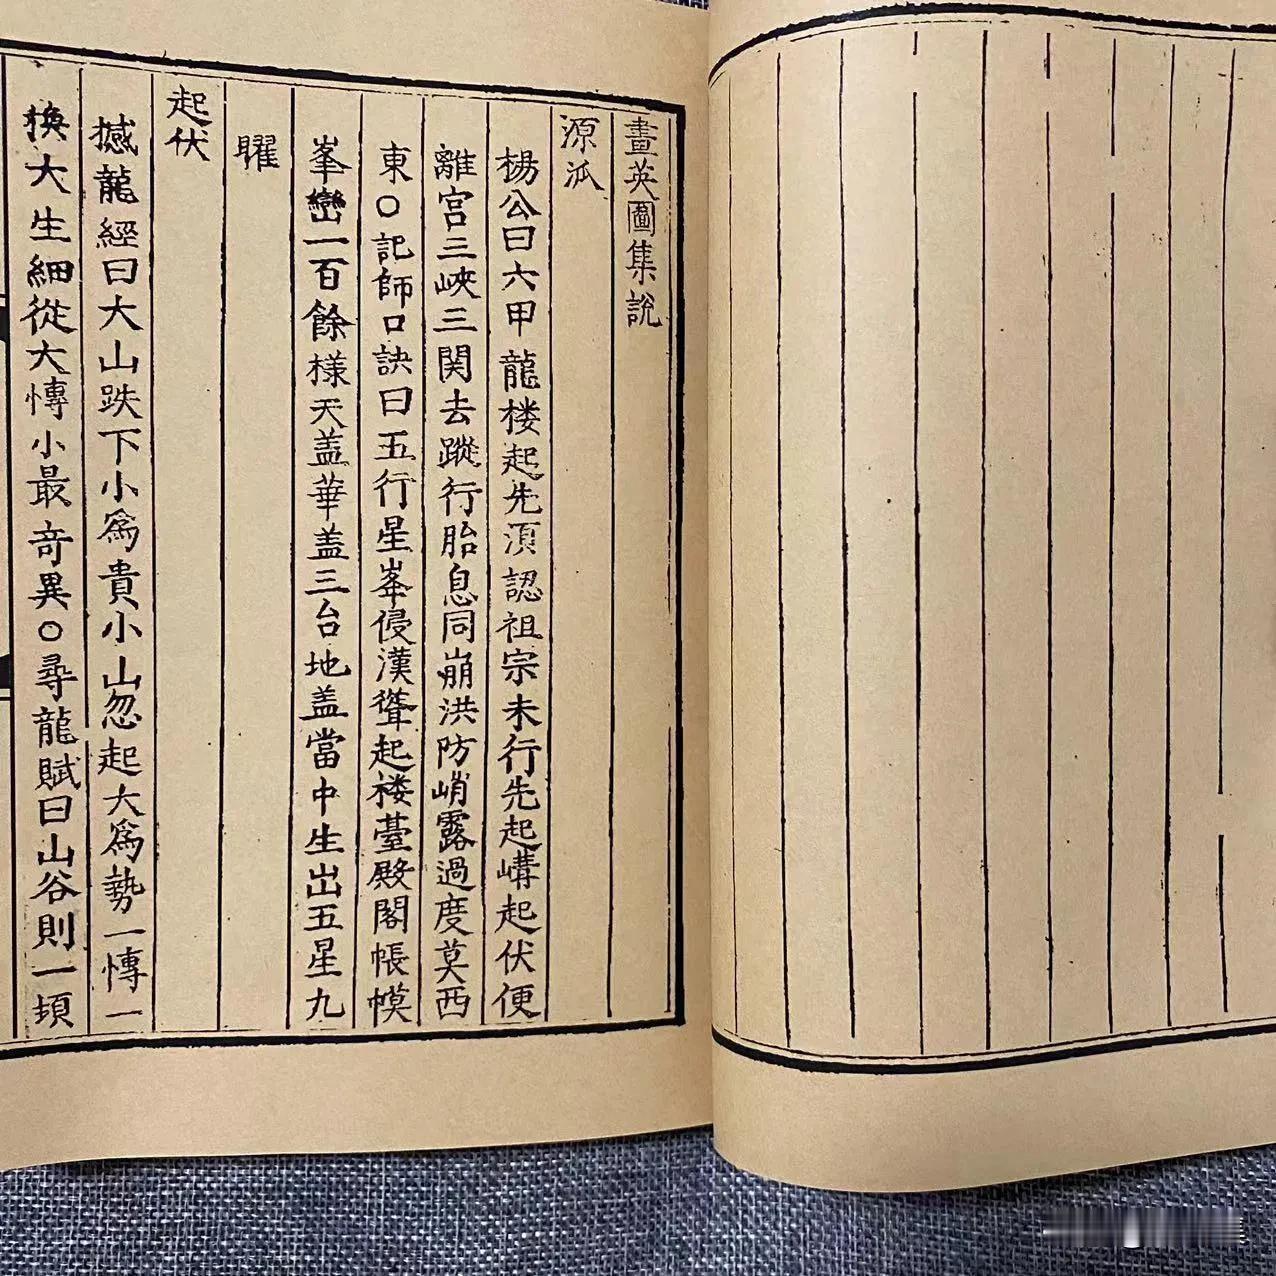 畫英圖集說
源派
楊公曰六甲龍楼起先湏認祖宗未行先起嶙起伏便
離宮三峽三関去蹤行胎息同崩洪防峭露過度莫西
東○記師口訣曰五行星峯侵漢聳起楼䑓殿閣帳幙
峯巒一百餘様天盖華盖三台地盖當中生出五星九
曜
起伏
撼龍經曰大山跌下小為貴小山忽起大為勢一愽一
換大生細從大愽小最竒異○尋龍賦曰山谷則一頃